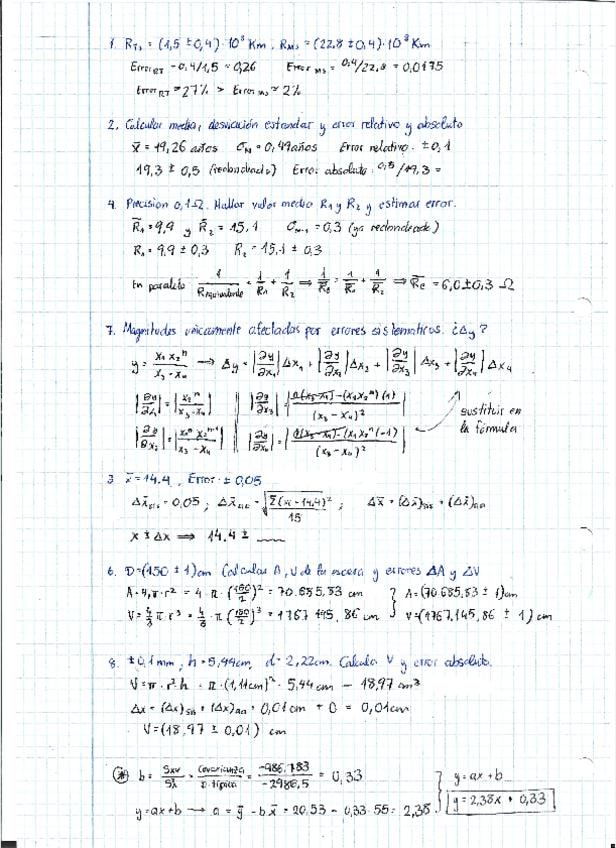 1. R_T☉ = (1,5 ± 0,4)·10⁸ Km. R_M☉ = (22,8 ± 0,4)·10⁸ Km
Error RT = 0.4/1,5 = 0,26 Error M☉ = 0,4/22,8 = 0,0175
Error RT ≈ 27% > Error M☉ ≈ 2%
2. Calcular media, desviación estandar y error relativo y absoluto
x̄ = 19,26 años σ_N = 0,49 años Error relativo: ±0,1
19,3 ± 0,5 (redondeado) Error absoluto: 0,5/19,3 =
4. Precision 0,1Ω. Hallar valor medio R₁ y R₂ y estimar error.
R̄₁ = 9,9 y R̄₂ = 15,1 σ_N-1 = 0,3 (ya redondeado)
R₁ = 9,9 ± 0,3 R₂ = 15,1 ± 0,3
En paralelo 1/R equivalente = 1/R₁ + 1/R₂ ⇒ 1/R̄e = 1/R̄₁ + 1/R̄₂ ⇒ R̄e = 6,0 ± 0,3 Ω
7. Magnitudes unicamente afectadas por errores sistematicos. ¿Δy?
y = x₁x₂ⁿ/(x₃-x₄) → Δy = |∂y/∂x₁| Δx₁ + |∂y/∂x₂| Δx₂ + |∂y/∂x₃| Δx₃ + |∂y/∂x₄| Δx₄
|∂y/∂x₁| = |x₂ⁿ/(x₃-x₄)| |∂y/∂x₃| = |0(x₃-x₄)-(x₁x₂ⁿ)(1)/(x₃-x₄)²|
sustituir en
la fórmula
|∂y/∂x₂| = |x₁n x₂ⁿ⁻¹/(x₃-x₄)| |∂y/∂x₄| = |0(x₃-x₄)-(x₁x₂ⁿ)(-1)/(x₃-x₄)²|
3. x̄ = 14.4, Error: ± 0,05
Δx̄sis = 0,05; Δx̄ = √(Σ(xi-14,4)²/15); Δx̄ = (Δx̄)sis + (Δx̄)aa
x ± Δx ⇒ 14.4 ±
6. D = (150 ± 1)cm Calcular A, V de la esfera y errores ΔA y ΔV
A = 4·π·r² = 4·π·(150/2)² = 70.685,83 cm A = (70.685,83 ± 1)cm
V = 4/3 π·r³ = 4/3·π(150/2)³ = 1767145,86 cm V = (1767.145,86 ± 1) cm
8. ±0,1mm, h = 5,44cm, d = 2,22cm. Calcula V y error absoluto.
V = π·r²·h = π·(1,11cm)²·5,44cm = 18,97 cm³
Δx = (Δx)sis + (Δx)aa = 0,01cm + 0 = 0,01cm
V = (18,97 ± 0,01) cm
⊛ b = Sxy/S²x = covarianza/D. típica = -986.783/-2986,5 = 0,33 y = ax + b
y = ax + b → a = ȳ - bx̄ = 20.53 - 0,33·55 = 2,38 y = 2,38x + 0,33